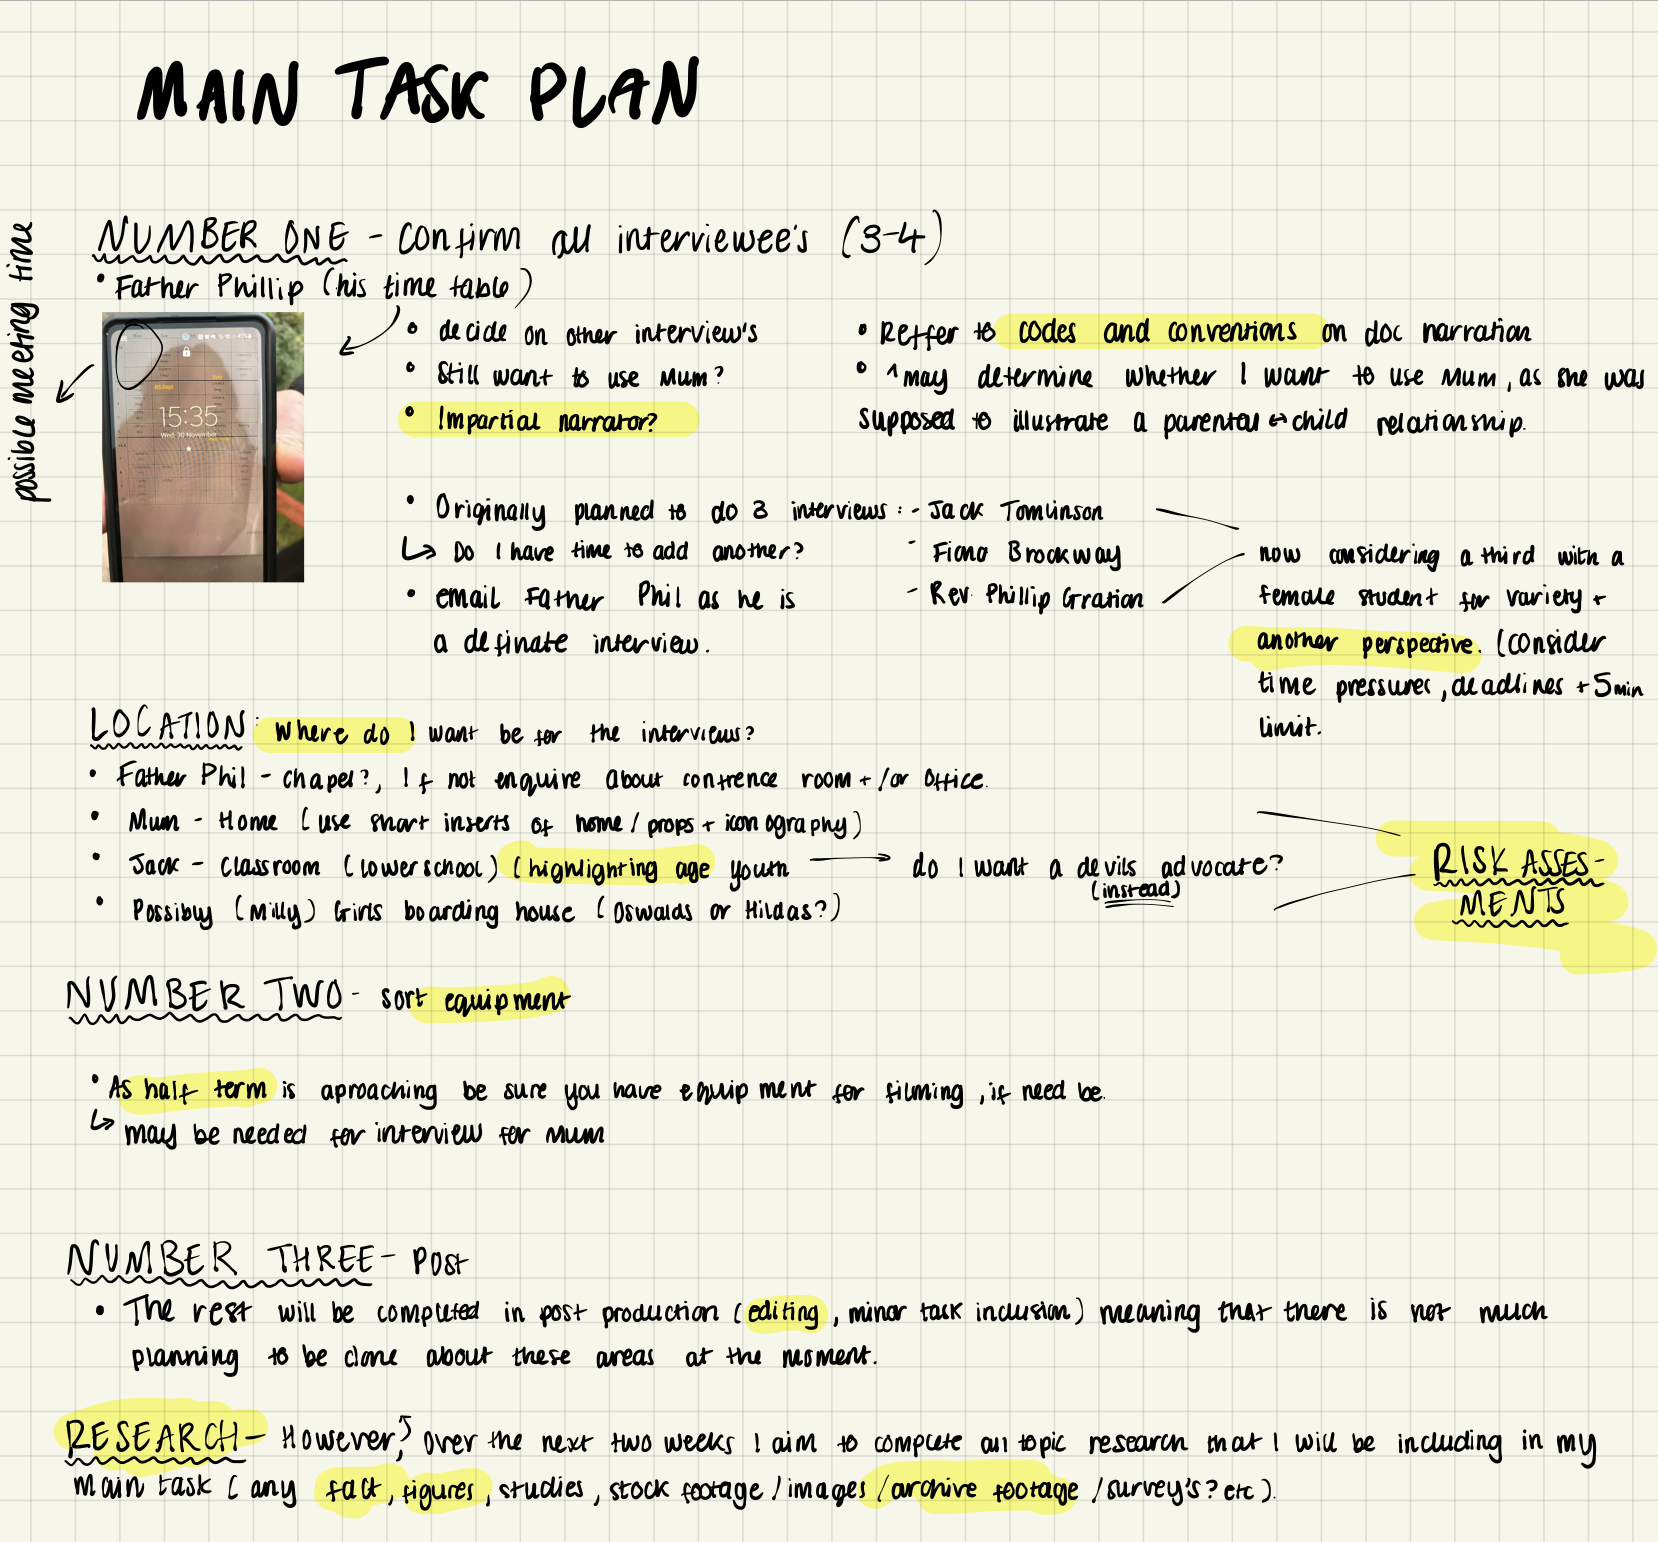 MAIN TASK PLAN
possible meeting time
NUMBER ONE - Confirm all interviewee's (3-4)
• Father Phillip (his time table)
15:35
Wed, 30 November
• decide on other interview's
• Still want to use Mum?
• Impartial narrator?
• Reffer to codes and conventions on doc narration
• ^may determine whether I want to use Mum, as she was
supposed to illustrate a parental ↔ child relationship.
• Originally planned to do 3 interviews : - Jack Tomlinson
↳ Do I have time to add another? - Fiona Brockway
• email Father Phil as he is - Rev. Phillip Gration
a definate interview.
now considering a third with a
female student for variety +
another perspective. (consider
time pressures, deadlines + 5min
limit.
LOCATION: Where do I want be for the interviews?
• Father Phil - chapel?, If not enquire about confrence room + /or office.
• Mum - Home (use short inserts of home / props + iconography)
• Jack - Classroom (lowerschool) (highlighting age youth → do I want a devils advocate?
(instead)
• Possibly (Milly) Girls boarding house (Oswalds or Hildas?)
RISK ASSES-
MENTS
NUMBER TWO - sort equipment
• As half term is aproaching be sure you have equipment for filming, if need be.
↳ may be needed for interview for Mum
NUMBER THREE - Post
• The rest will be completed in post production (editing, minor task inclusion) meaning that there is not much
planning to be done about these areas at the moment.
RESEARCH - However, ↑ Over the next two weeks I aim to complete all topic research that I will be including in my
main task (any fact, figures, studies, stock footage / images / archive footage / survey's? etc).